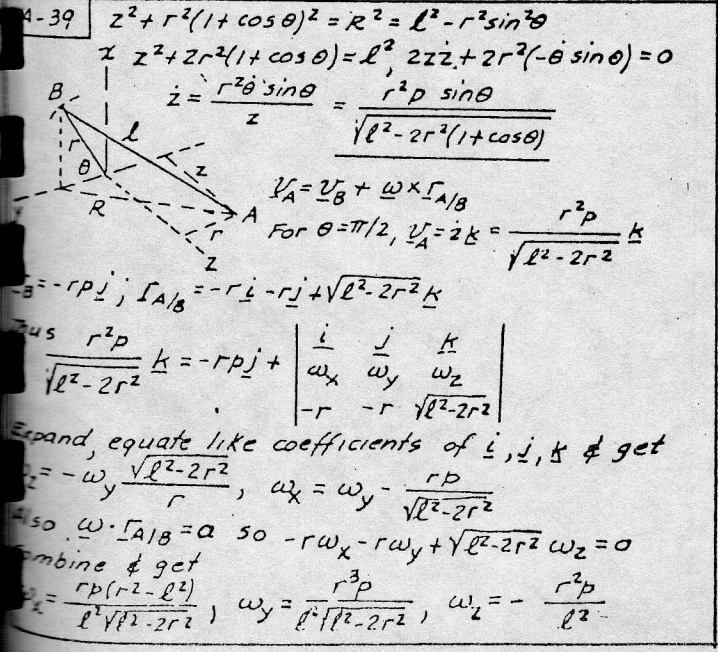 A-39 z² + r²(1 + cos θ)² = R² = l² - r² sin²θ
z² + 2r²(1 + cos θ) = l², 2zż + 2r²(-θ̇ sin θ) = 0
ż = r²θ̇ sin θ / z = r²p sin θ / √(l² - 2r²(1 + cos θ))
x
B
l
r
θ
z
R
A
r
z
v_A = v_B + ω × r_A/B
For θ = π/2, v_A = ż k = r²p / √(l² - 2r²) k
= -rp j ; r_A/B = -r i - r j + √(l² - 2r²) k
r²p / √(l² - 2r²) k = -rp j + | i j k |
| ω_x ω_y ω_z |
| -r -r √(l² - 2r²) |
Expand, equate like coefficients of i, j, k & get
= -ω_y √(l² - 2r²) / r , ω_x = ω_y - rp / √(l² - 2r²)
Also ω · r_A/B = 0 so -rω_x - rω_y + √(l² - 2r²) ω_z = 0
Combine & get
= rp(r² - l²) / l²√(l² - 2r²) , ω_y = r³p / l²√(l² - 2r²) , ω_z = - r²p / l²